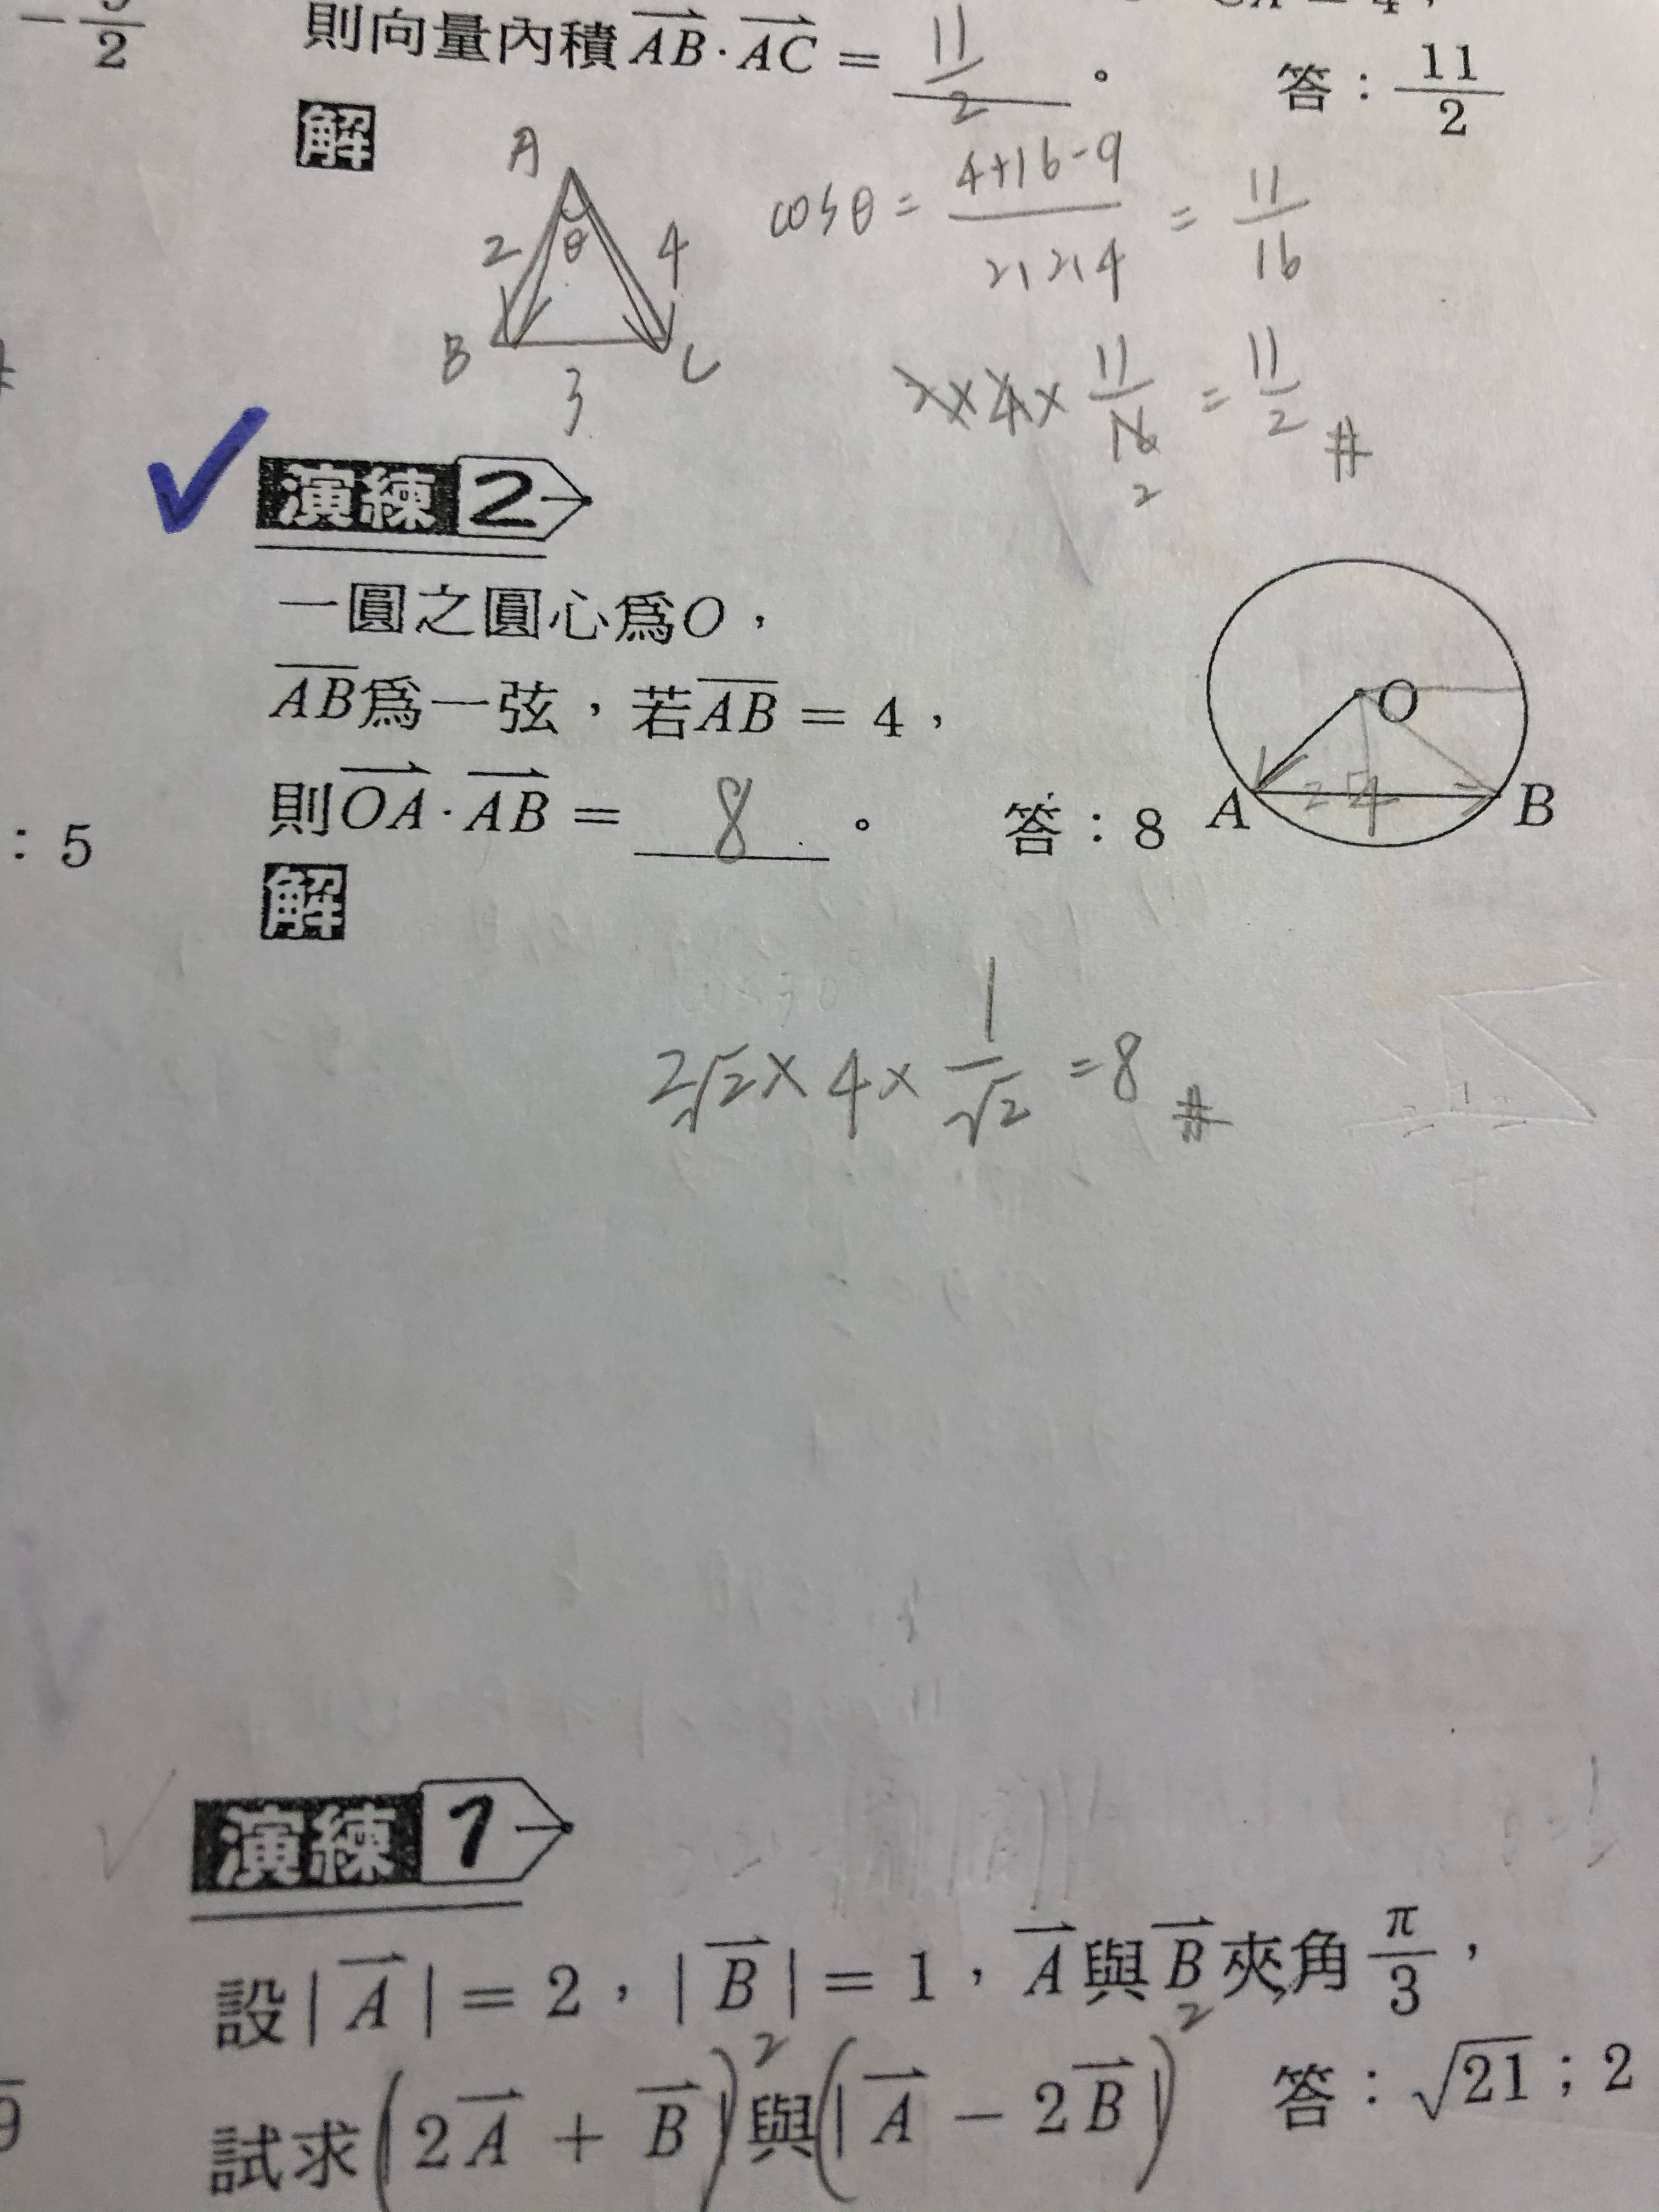 2
則向量內積 AB · AC = 11/2 。 答：11/2
解
A
cosθ = (4+16-9)/(2×2×4) = 11/16
2 θ 4
B 3 C
2×4×11/16 = 11/2 #
2
演練 2
一圓之圓心為O，
AB為一弦，若AB = 4，
則OA · AB = 8 。 答：8
O
A 4 B
：5
解
2√2 × 4 × 1/√2 = 8 #
演練 1
設| A | = 2，| B | = 1，A與B夾角π/3，
試求(|2A + B|)²與(|A − 2B|)² 答：√21；2
9